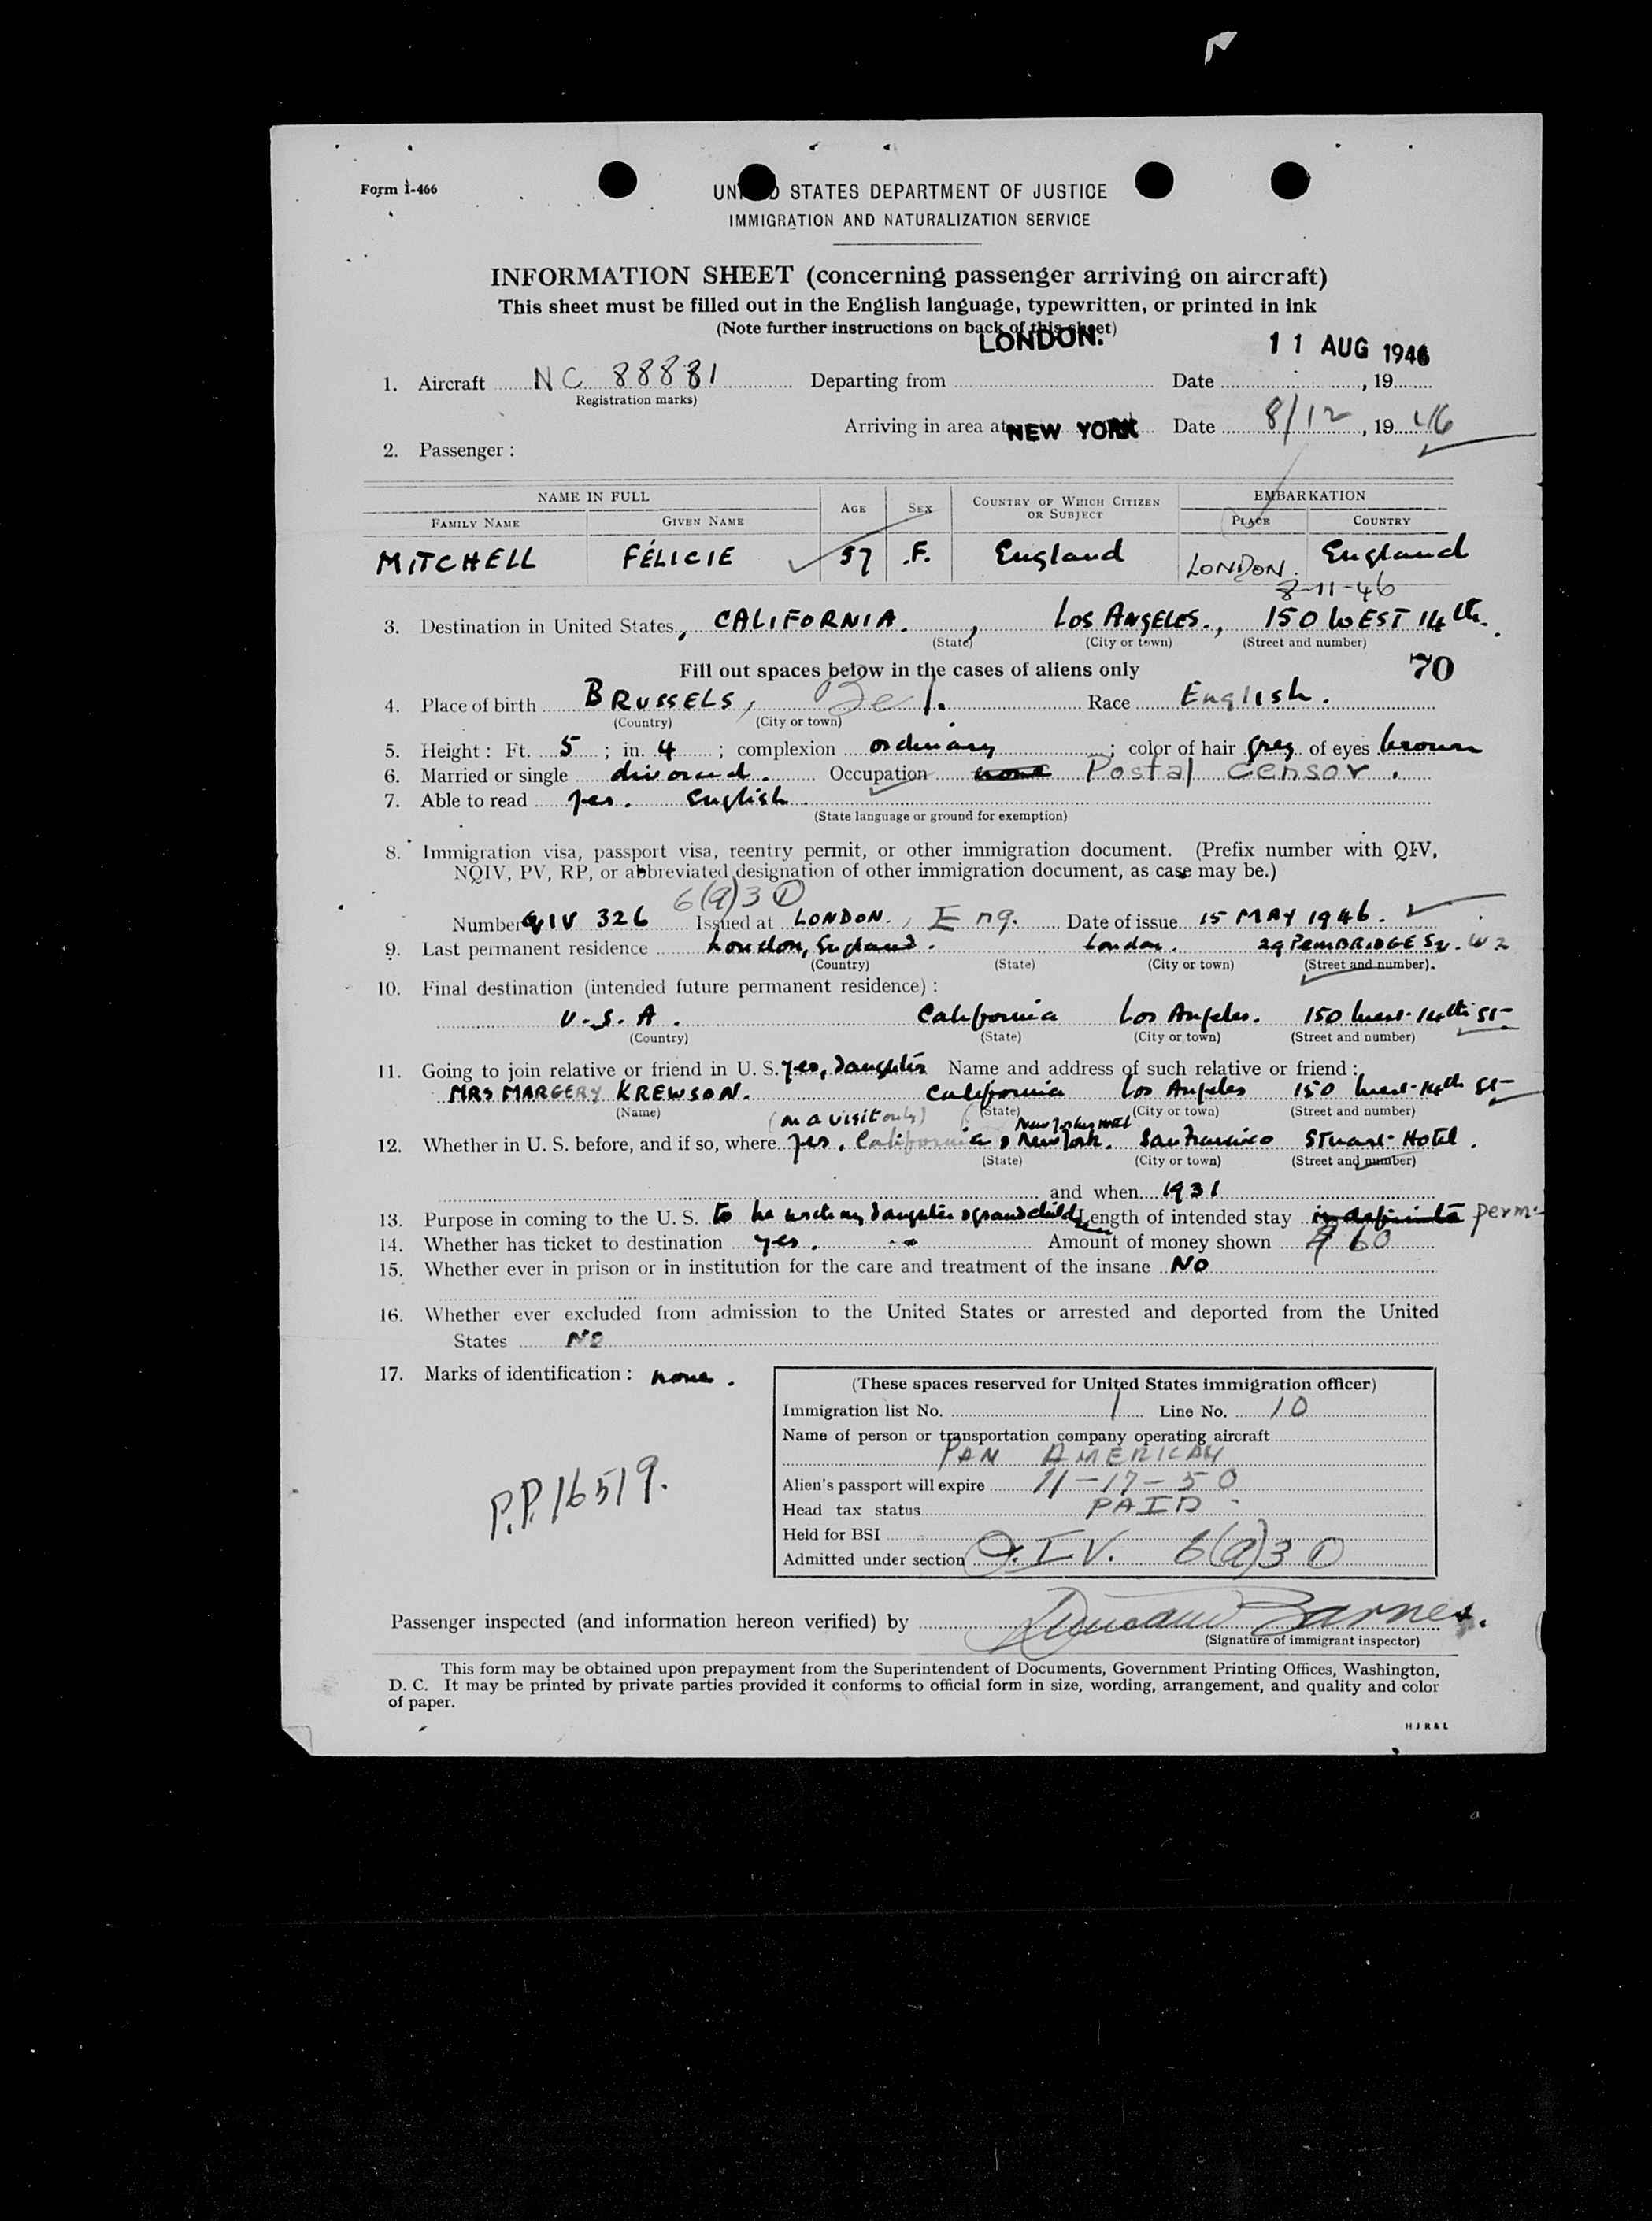 Form I-466
UNITED STATES DEPARTMENT OF JUSTICE
IMMIGRATION AND NATURALIZATION SERVICE
INFORMATION SHEET (concerning passenger arriving on aircraft)
This sheet must be filled out in the English language, typewritten, or printed in ink
(Note further instructions on back of this sheet)
LONDON. 11 AUG 1946
1. Aircraft NC 88881 Departing from Date , 19
(Registration marks)
Arriving in area at NEW YORK Date 8/12, 19 46
2. Passenger :
NAME IN FULL AGE SEX COUNTRY OF WHICH CITIZEN OR SUBJECT EMBARKATION
FAMILY NAME GIVEN NAME PLACE COUNTRY
MITCHELL FÉLICIE 57 F. England LONDON. England
8-11-46
3. Destination in United States, CALIFORNIA. , LOS ANGELES., 150 WEST 14th.
(State) (City or town) (Street and number)
Fill out spaces below in the cases of aliens only 70
4. Place of birth BRUSSELS, Bel. Race English.
(Country) (City or town)
5. Height : Ft. 5 ; in. 4 ; complexion ordinary ; color of hair Grey of eyes brown
6. Married or single divorced. Occupation none Postal Censor.
7. Able to read yes. English.
(State language or ground for exemption)
8. Immigration visa, passport visa, reentry permit, or other immigration document. (Prefix number with QIV,
NQIV, PV, RP, or abbreviated designation of other immigration document, as case may be.)
6(a)3 ①
Number QIV 326 Issued at LONDON., Eng. Date of issue 15 MAY 1946.
9. Last permanent residence London, England. London. 29 PEMBRIDGE Sq. W2
(Country) (State) (City or town) (Street and number).
10. Final destination (intended future permanent residence) :
U.S.A. California Los Angeles. 150 West 14th St
(Country) (State) (City or town) (Street and number)
11. Going to join relative or friend in U. S. yes, Daughter Name and address of such relative or friend :
MRS MARGERY KREWSON. California Los Angeles 150 West 14th St
(Name) (State) (City or town) (Street and number)
(on a visit only) New Yorker Hotel
12. Whether in U. S. before, and if so, where yes. California & New York. San Francisco Stuart Hotel.
(State) (City or town) (Street and number)
and when 1931
13. Purpose in coming to the U. S. to be with my daughter & grandchildren Length of intended stay indefinite perm.
14. Whether has ticket to destination yes. Amount of money shown $ 60
15. Whether ever in prison or in institution for the care and treatment of the insane NO
16. Whether ever excluded from admission to the United States or arrested and deported from the United
States NO
17. Marks of identification : none.
(These spaces reserved for United States immigration officer)
Immigration list No. 1 Line No. 10
Name of person or transportation company operating aircraft
PAN AMERICAN
Alien's passport will expire 11-17-50
Head tax status PAID
Held for BSI
Admitted under section Q.I.V. 6(a)3 ①
P.P. 16519.
Passenger inspected (and information hereon verified) by Barnes.
(Signature of immigrant inspector)
This form may be obtained upon prepayment from the Superintendent of Documents, Government Printing Offices, Washington,
D. C. It may be printed by private parties provided it conforms to official form in size, wording, arrangement, and quality and color
of paper.
HJR&L